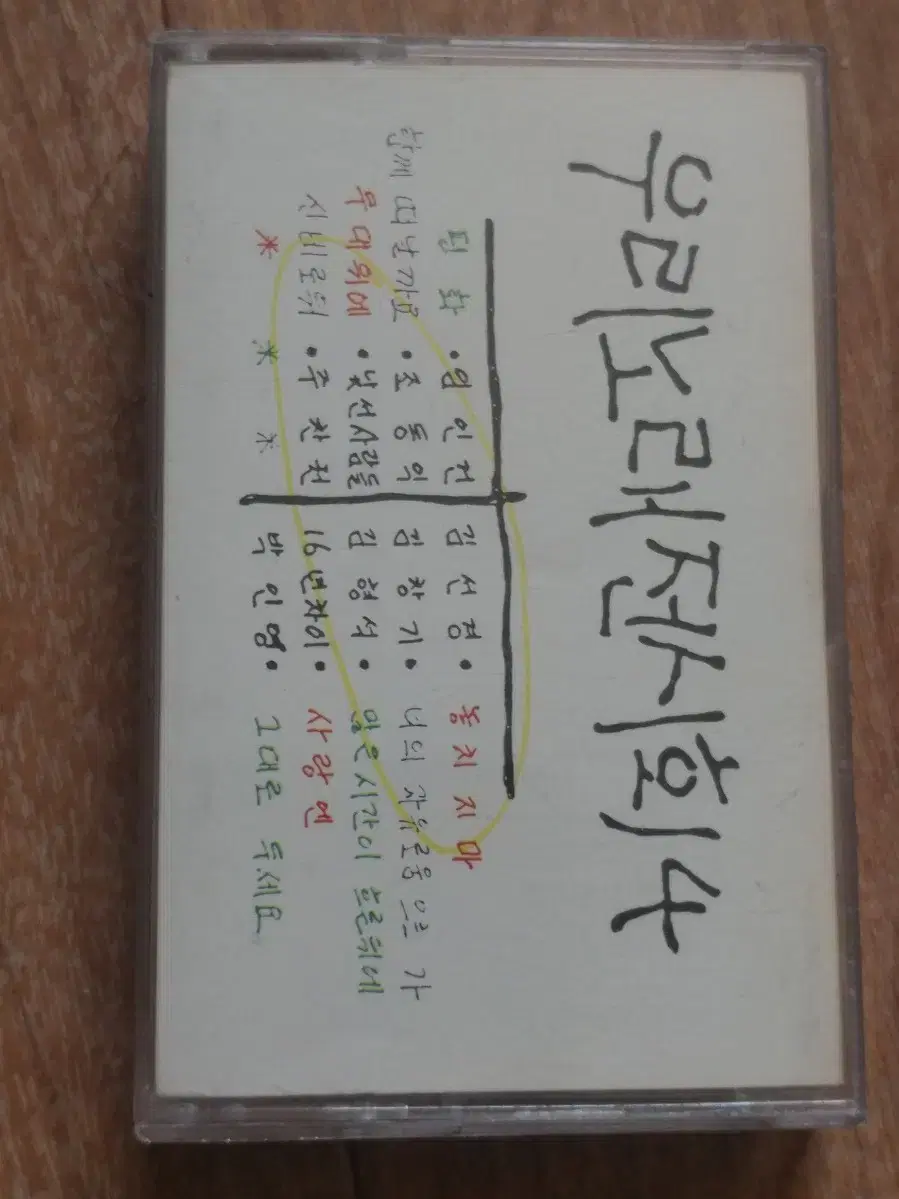 우리노래전시회4
평화 • 임인건 김선경 • 놓치지마
함께 떠날까요 • 조동익 김창기 • 너의 자유로움으로 가
무대위에 • 낯선사람들 김형석 • 많은시간이 흐른뒤에
신비로워 • 주찬권 16년차이 • 사랑엔
* * * 박인영 • 그대로 두세요